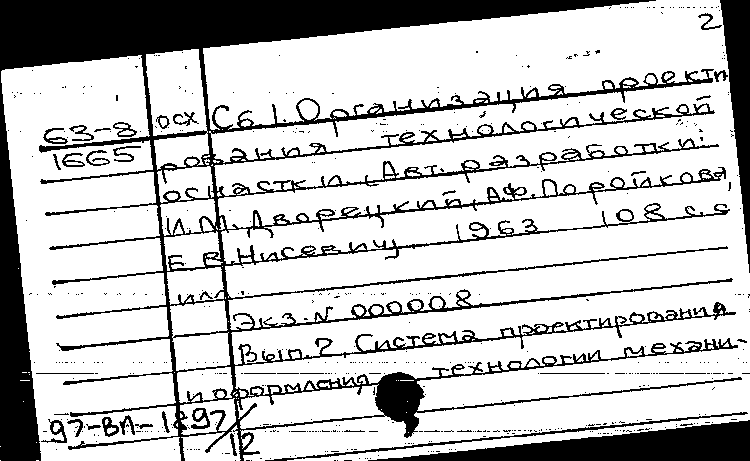 2
63-8 осх Сб 1. Организация проекти
1665 рования технологической
оснастки. (Авт. разработки:
И.М. Дворецкий, А.Ф. Поройкова,
Е.В. Нисевич 1963 108 с. с
илл.
Экз. N 000008.
Вып. 2. Система проектирования
и оформления технологии механи-
97-ВЛ-1897/12